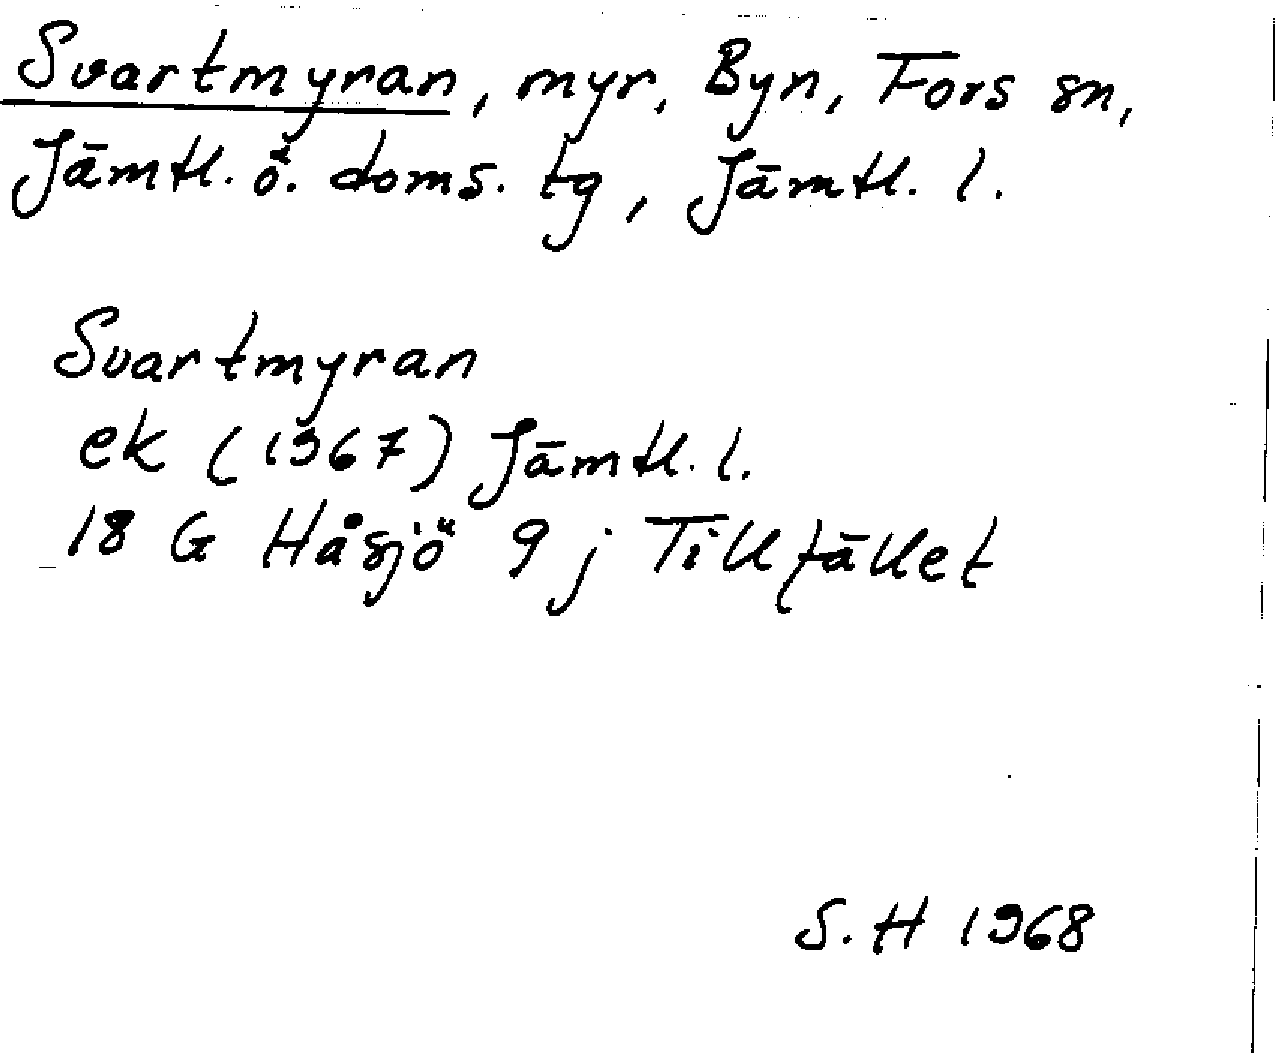 Svartmyran, myr, Byn, Fors sn,
Jämtl. ö. doms. tg, Jämtl. l.
Svartmyran
ek (1967) Jämtl. l.
18 G Håsjö 9 j Tillfället
S. H 1968